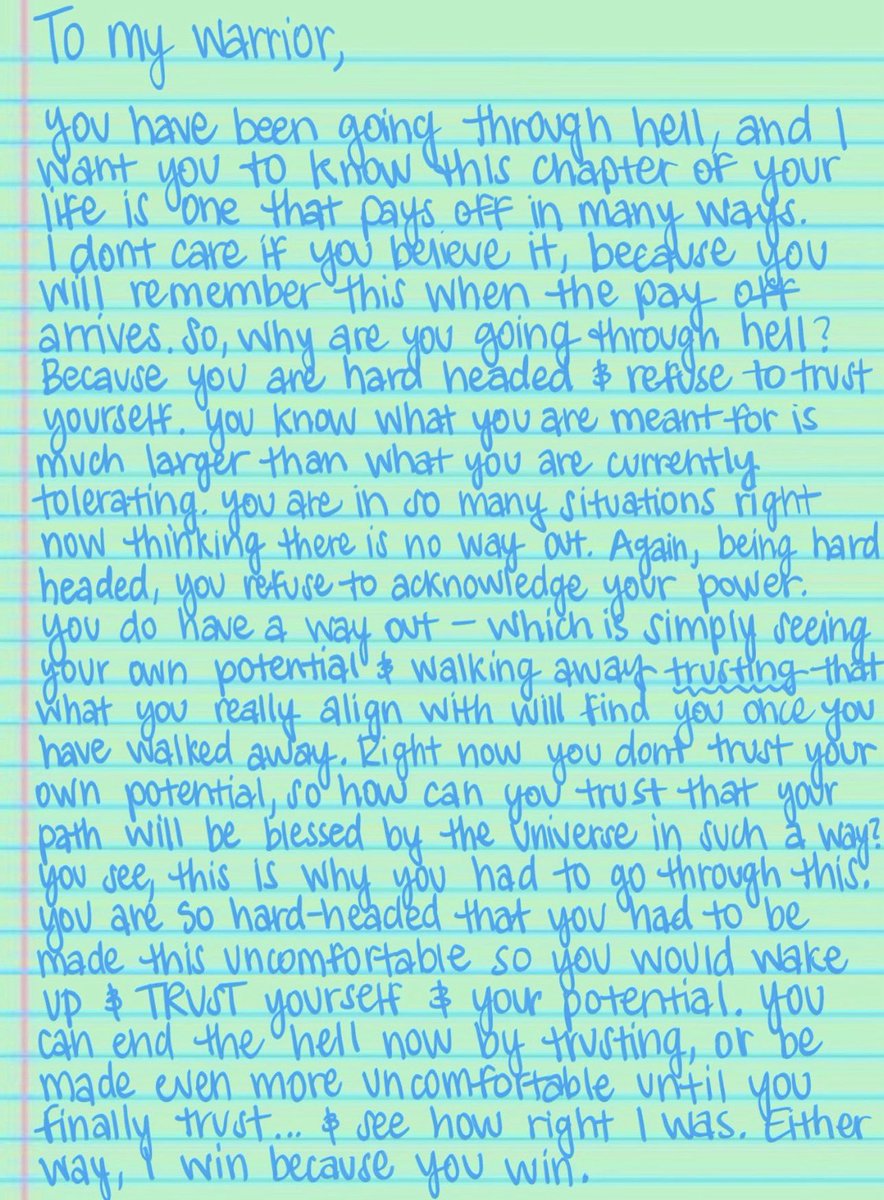 To my warrior,
you have been going through hell, and I
want you to know this chapter of your
life is one that pays off in many ways.
I dont care if you believe it, because you
will remember this when the pay off
arrives. So, why are you going through hell?
Because you are hard headed & refuse to trust
yourself. you know what you are meant for is
much larger than what you are currently
tolerating. you are in so many situations right
now thinking there is no way out. Again, being hard
headed, you refuse to acknowledge your power.
you do have a way out – which is simply seeing
your own potential & walking away trusting that
what you really align with will find you once you
have walked away. Right now you dont trust your
own potential, so how can you trust that your
path will be blessed by the Universe in such a way?
you see, this is why you had to go through this.
you are so hard-headed that you had to be
made this uncomfortable so you would wake
up & TRUST yourself & your potential. you
can end the hell now by trusting, or be
made even more uncomfortable until you
finally trust... & see how right I was. Either
way, I win because you win.